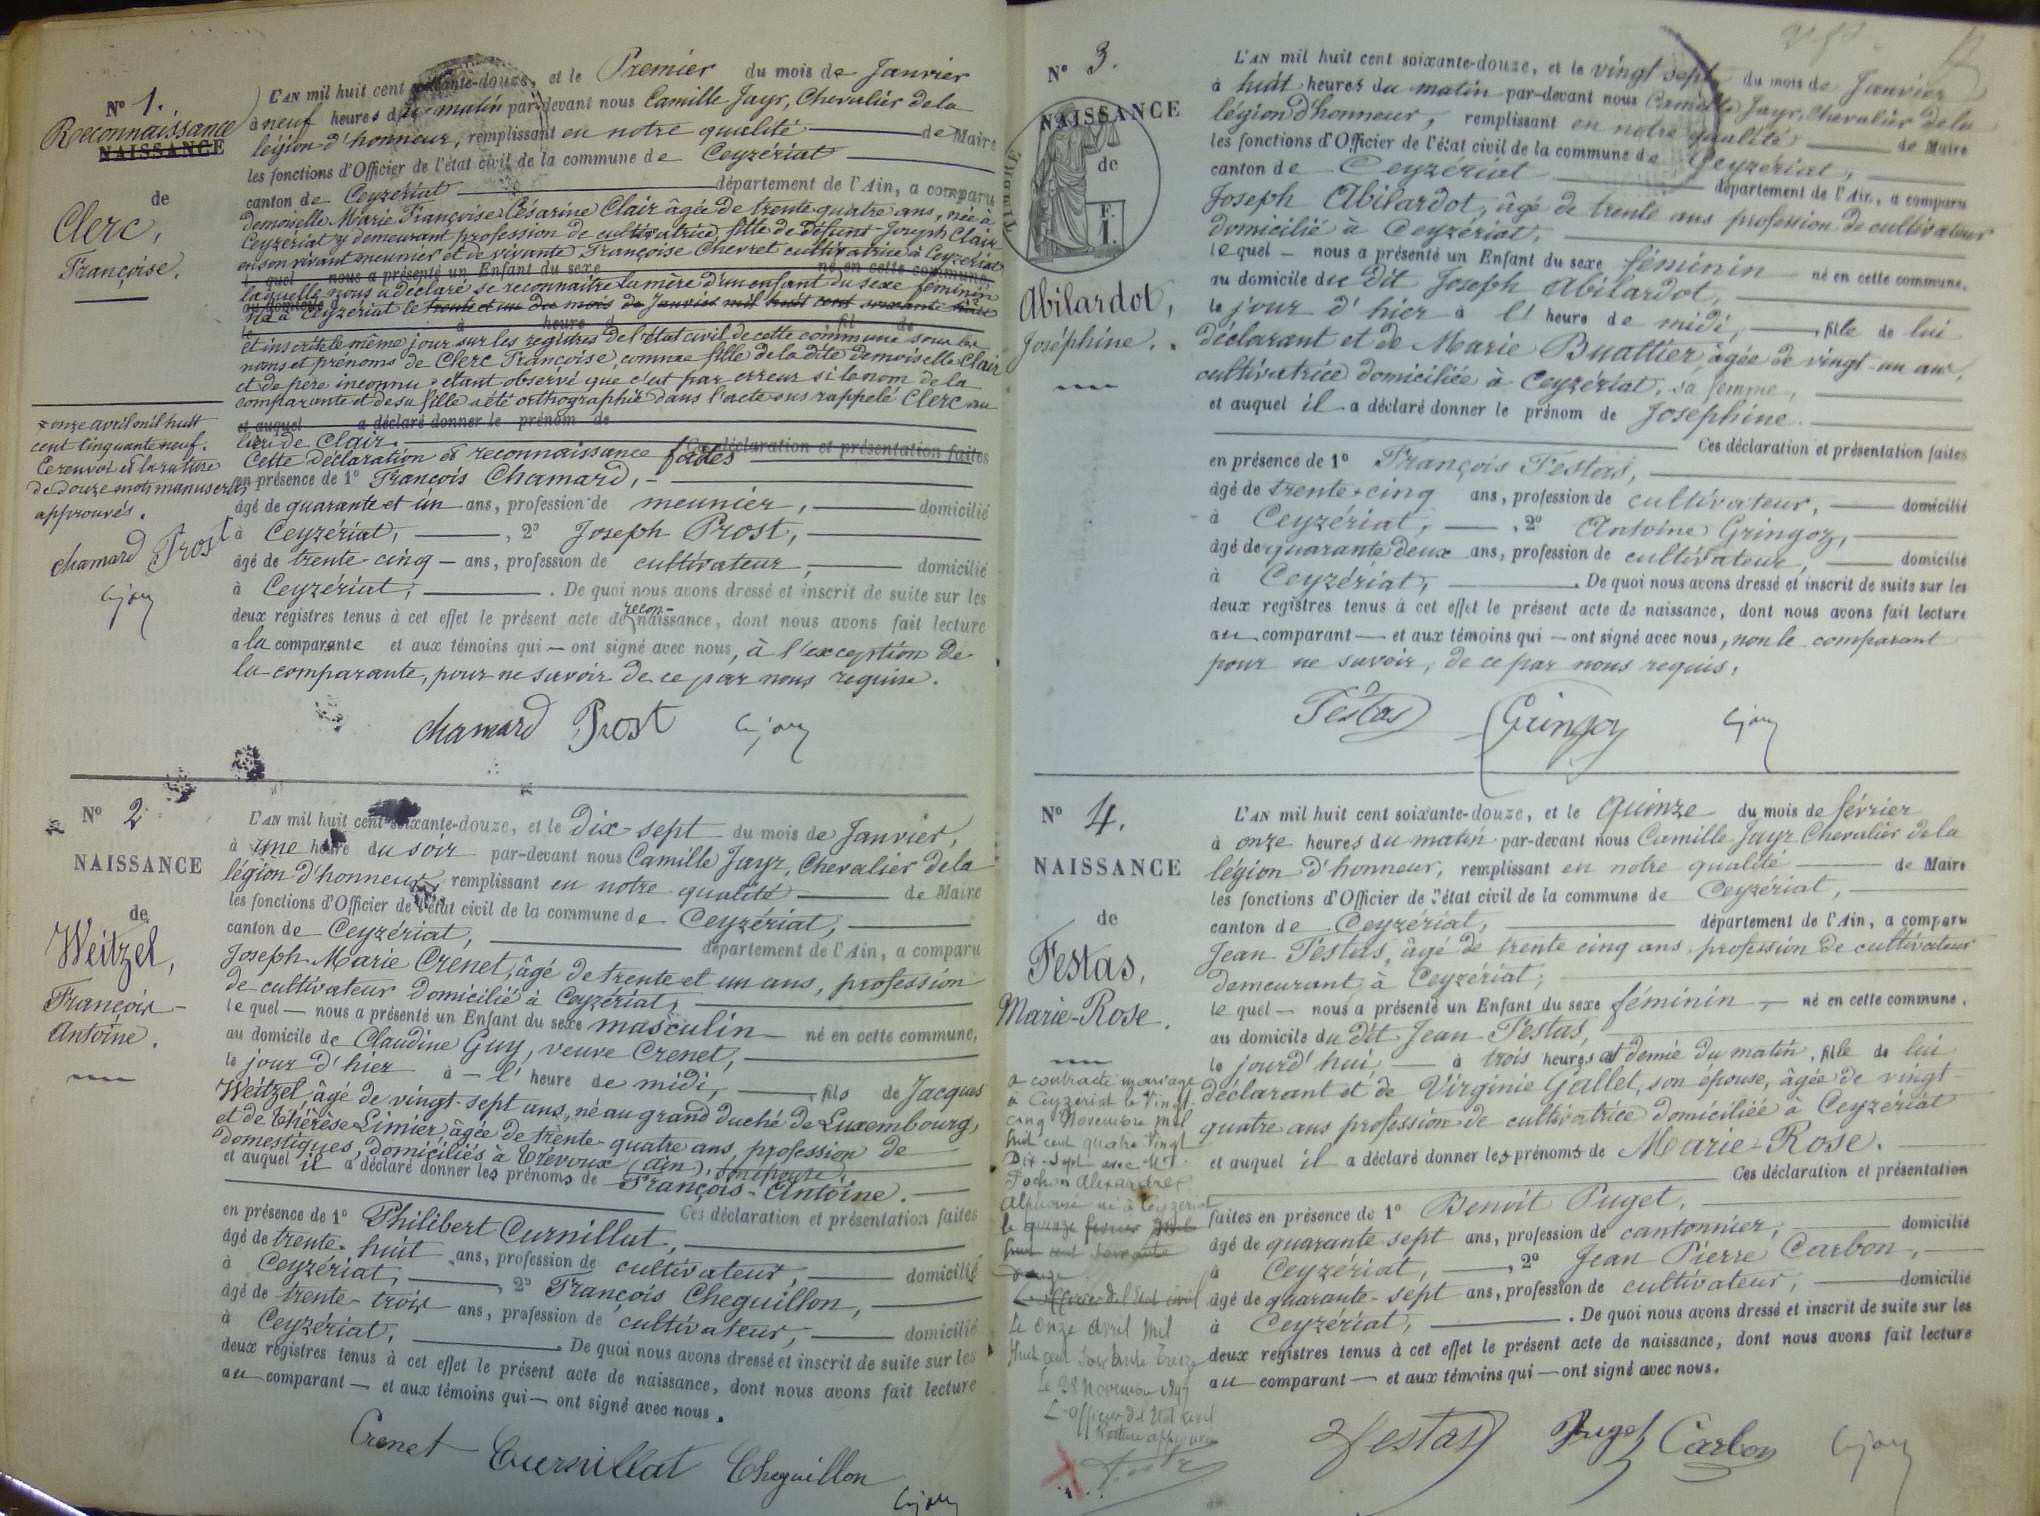 N° 1.
Reconnaissance
NAISSANCE
de
Clerc,
Françoise.
L'AN mil huit cent soixante-douze, et le Premier du mois de Janvier
à neuf heures du matin par-devant nous Camille Jayr, Chevalier de la
légion d'honneur, remplissant en notre qualité de Maire
les fonctions d'Officier de l'état civil de la commune de Ceyzériat
canton de Ceyzériat département de l'Ain, a comparu
demoiselle Marie Françoise Césarine Clair âgée de trente quatre ans, née à
Ceyzériat y demeurant profession de cultivatrice fille de défunt Joseph Clair
en son vivant meunier et de vivante Françoise Chevret cultivatrice à Ceyzériat
l quel nous a présenté un Enfant du sexe né en cette commune
laquelle nous a déclaré se reconnaitre la mère d'un enfant du sexe féminin
au domicile
né à Ceyzériat le trente et un du mois de Janvier mil huit cent soixante
le à heure d fil de
et inscrite le même jour sur les registres de l'état civil de cette commune sous les
noms et prénoms de Clerc Françoise, comme fille de la dite demoiselle Clair
et de père inconnu, étant observé que c'est par erreur si le nom de la
comparante et de sa fille a été orthographié dans l'acte sus rappelé Clerc au
et auquel a déclaré donner le prénom de
lieu de Clair.
Ces déclaration et présentation faites
Cette déclaration et reconnaissance faites
en présence de 1° François Chamard,
âgé de quarante et un ans, profession de meunier, domicilié
à Ceyzériat, , 2° Joseph Prost,
âgé de trente-cinq ans, profession de cultivateur, domicilié
à Ceyzériat, . De quoi nous avons dressé et inscrit de suite sur les
recon-
deux registres tenus à cet effet le présent acte de naissance, dont nous avons fait lecture
a la comparante et aux témoins qui ont signé avec nous, à l'exception de
la comparante, pour ne savoir de ce par nous requise.
chamard Prost
onze avril mil huit
cent cinquante neuf.
Ce renvoi et la rature
de douze mots manuscrits
approuvés.
chamard Prost
N° 2
NAISSANCE
de
Weitzel,
François-
Antoine.
L'AN mil huit cent soixante-douze, et le Dix-sept du mois de Janvier,
à une heure du soir par-devant nous Camille Jayr, Chevalier de la
légion d'honneur, remplissant en notre qualité de Maire
les fonctions d'Officier de l'état civil de la commune de Ceyzériat,
canton de Ceyzériat, département de l'Ain, a comparu
Joseph-Marie Crenet, âgé de trente et un ans, profession
de cultivateur domicilié à Ceyzériat,
le quel nous a présenté un Enfant du sexe masculin né en cette commune,
au domicile de Claudine Guy, veuve Crenet,
le jour d'hier à l' heure de midi, , fils de Jacques
Weitzel, âgé de vingt-sept ans, né au grand duché de Luxembourg,
et de Thérèse Limier âgée de trente-quatre ans, profession de
domestiques, domiciliés à Trévoux (ain), son épouse,
et auquel il a déclaré donner les prénoms de François-Antoine.
Ces déclaration et présentation faites
en présence de 1° Philibert Curnillat,
âgé de trente-huit ans, profession de cultivateur, domicilié
à Ceyzériat, , 2° François Cheguillon,
âgé de trente-trois ans, profession de cultivateur, domicilié
à Ceyzériat, . De quoi nous avons dressé et inscrit de suite sur les
deux registres tenus à cet effet le présent acte de naissance, dont nous avons fait lecture
au comparant et aux témoins qui ont signé avec nous.
Crenet Curnillat Cheguillon
N° 3.
NAISSANCE
de
Abilardot,
Joséphine.
L'AN mil huit cent soixante-douze, et le vingt sept du mois de Janvier
à huit heures du matin par-devant nous Camille Jayr, Chevalier de la
légion d'honneur, remplissant en notre qualité de Maire
les fonctions d'Officier de l'état civil de la commune de Ceyzériat,
canton de Ceyzériat département de l'Ain, a comparu
Joseph Abilardot, âgé de trente ans profession de cultivateur
domicilié à Ceyzériat,
le quel nous a présenté un Enfant du sexe féminin né en cette commune.
au domicile du dit Joseph Abilardot,
le jour d'hier à l' heure de midi, , fille de lui
déclarant et de Marie Buattier, âgée de vingt-un ans,
cultivatrice domiciliée à Ceyzériat, sa femme,
et auquel il a déclaré donner le prénom de Joséphine.
Ces déclaration et présentation faites
en présence de 1° François Festas,
âgé de trente-cinq ans, profession de cultivateur, domicilié
à Ceyzériat, , 2° Antoine Gringoz,
âgé de quarante deux ans, profession de cultivateur, domicilié
à Ceyzériat, . De quoi nous avons dressé et inscrit de suite sur les
deux registres tenus à cet effet le présent acte de naissance, dont nous avons fait lecture
au comparant et aux témoins qui ont signé avec nous, non le comparant
pour ne savoir, de ce par nous requis.
Festas Gringoz
N° 4.
NAISSANCE
de
Festas,
Marie-Rose.
L'AN mil huit cent soixante-douze, et le quinze du mois de février
à onze heures du matin par-devant nous Camille Jayr Chevalier de la
légion d'honneur, remplissant en notre qualité de Maire
les fonctions d'Officier de l'état civil de la commune de Ceyzériat,
canton de Ceyzériat, département de l'Ain, a comparu
Jean Festas, âgé de trente cinq ans profession de cultivateur
demeurant à Ceyzériat,
le quel nous a présenté un Enfant du sexe féminin, né en cette commune.
au domicile du dit Jean Festas,
le jourd'hui, à trois heures et demie du matin, fille de lui
déclarant et de Virginie Gallet, son épouse, âgée de vingt-
quatre ans profession de cultivatrice domiciliée à Ceyzériat
et auquel il a déclaré donner les prénoms de Marie-Rose.
Ces déclaration et présentation
faites en présence de 1° Benoit Puget,
âgé de quarante sept ans, profession de cantonnier, domicilié
à Ceyzériat, , 2° Jean Pierre Carbon,
âgé de quarante-sept ans, profession de cultivateur, domicilié
à Ceyzériat, . De quoi nous avons dressé et inscrit de suite sur les
deux registres tenus à cet effet le présent acte de naissance, dont nous avons fait lecture
au comparant et aux témoins qui ont signé avec nous.
Festas Puget Carbon
a contracté mariage
à Ceyzériat le Vingt
cinq Novembre mil
huit cent quatre Vingt
Dix-Sept avec Mr
Fochon Alexandre
Alphonse né à Ceyzériat
le quinze fevrier mil
huit cent soixante
douze
L'officier de l'Etat civil
Le Onze Avril Mil
Huit cent Soixante Treize
Le 28 Novembre 1897
L'officier de l'Etat civil
Rature approuvée